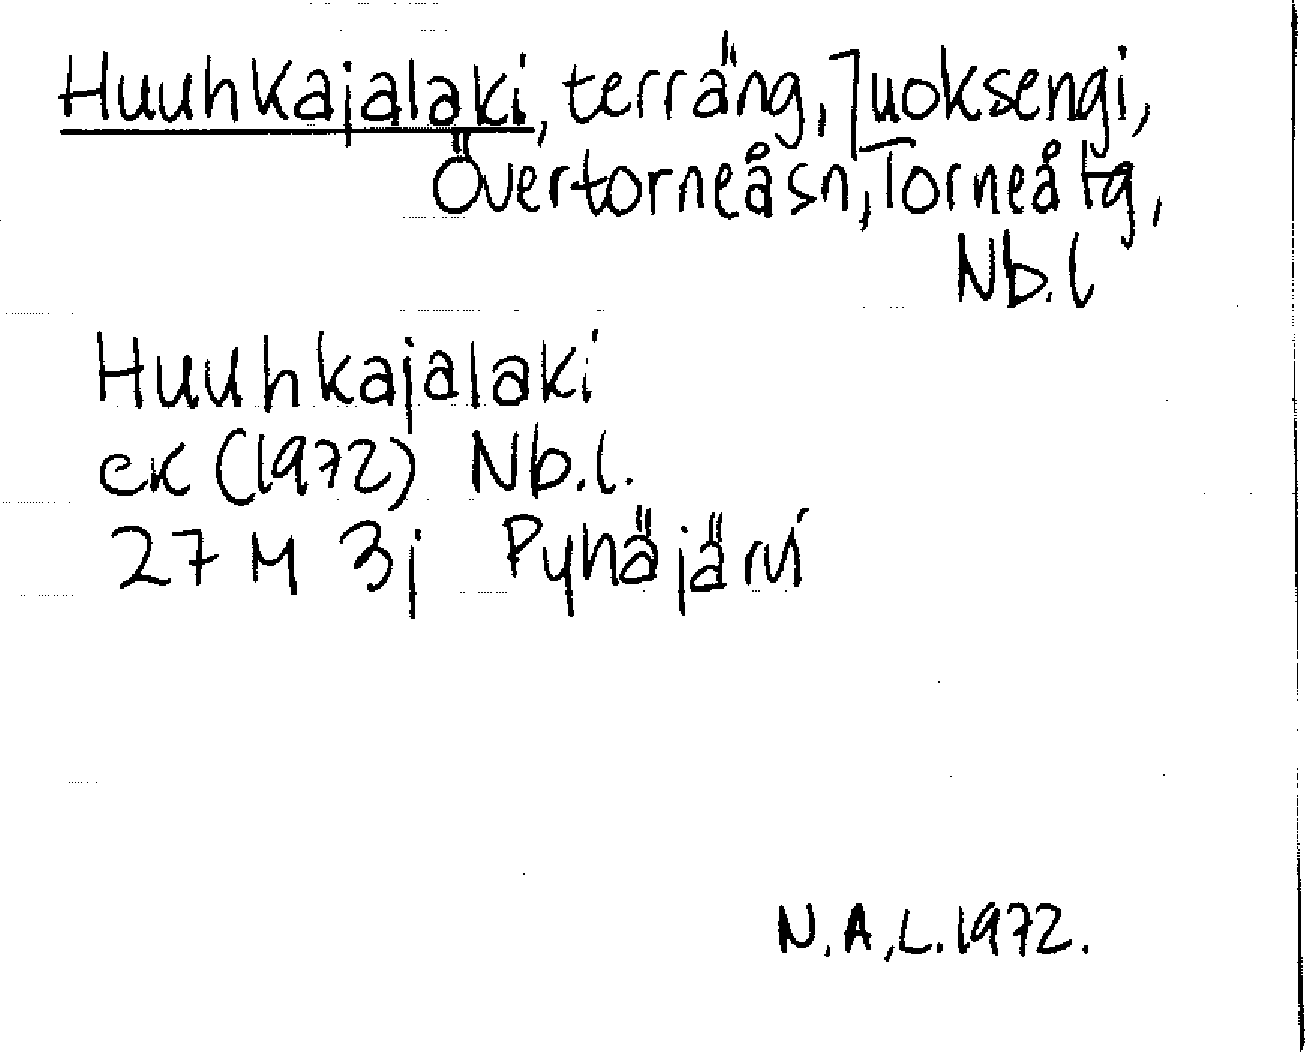 Huuhkajalaki, terräng, Juoksengi,
Övertorneå sn, Torneå tg,
Nb. l
Huuhkajalaki
ek (1972) Nb. l.
27 M 3j Pyhäjärvi
N. A, L. 1972.